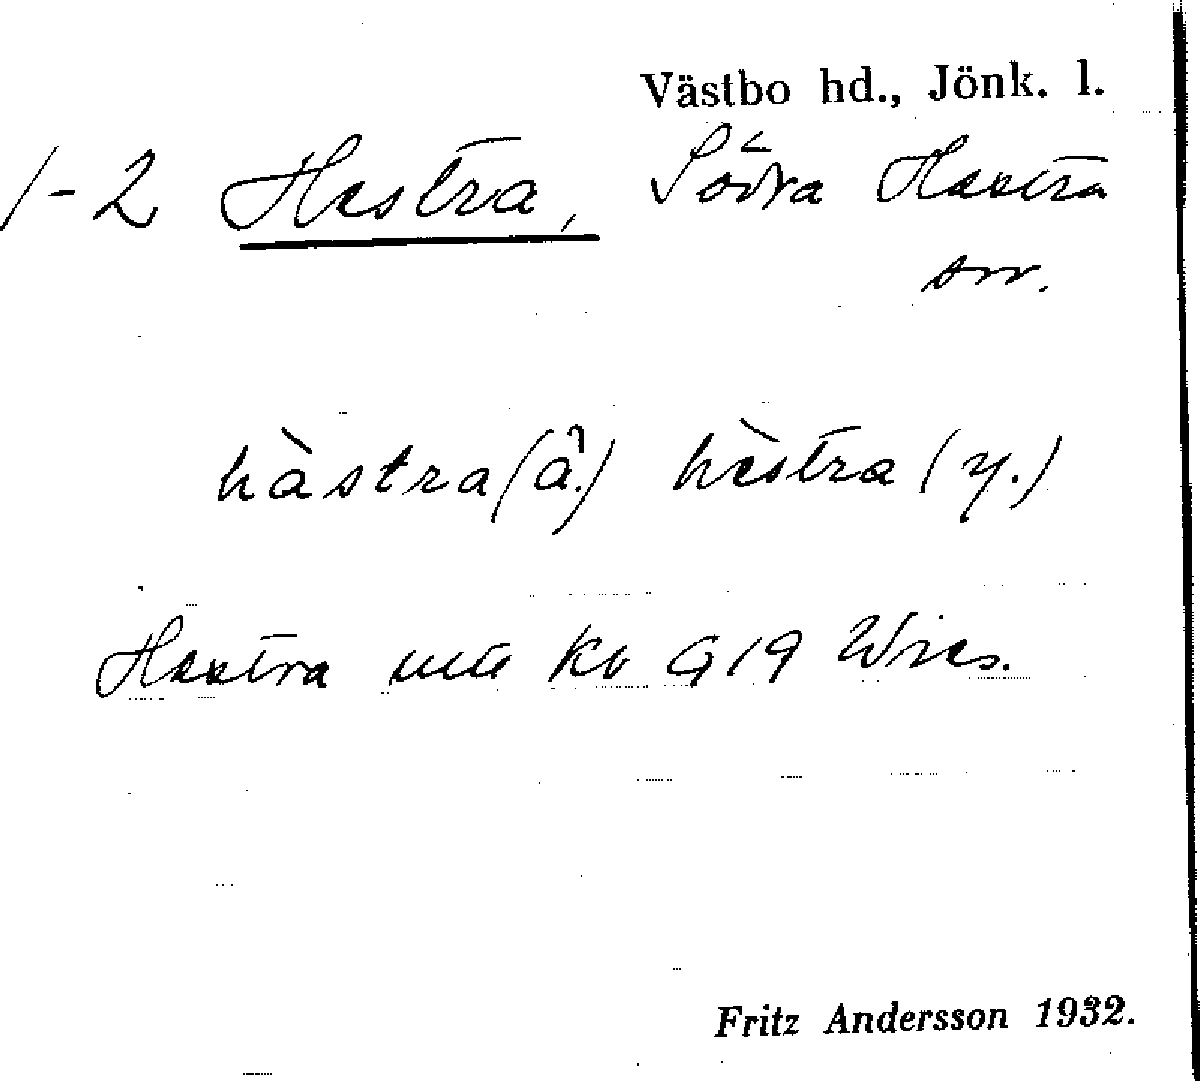 Västbo hd., Jönk. l.
1-2 Hestra, Södra Hestra
sn.
hàstra (ä.) hèstra (y.)
Hestra
Fritz Andersson 1932.